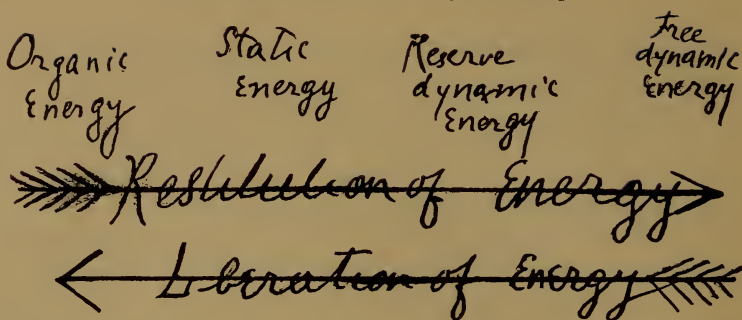 Organic Energy
Static Energy
Reserve dynamic Energy
Free dynamic Energy
Restitution of Energy
Liberation of Energy